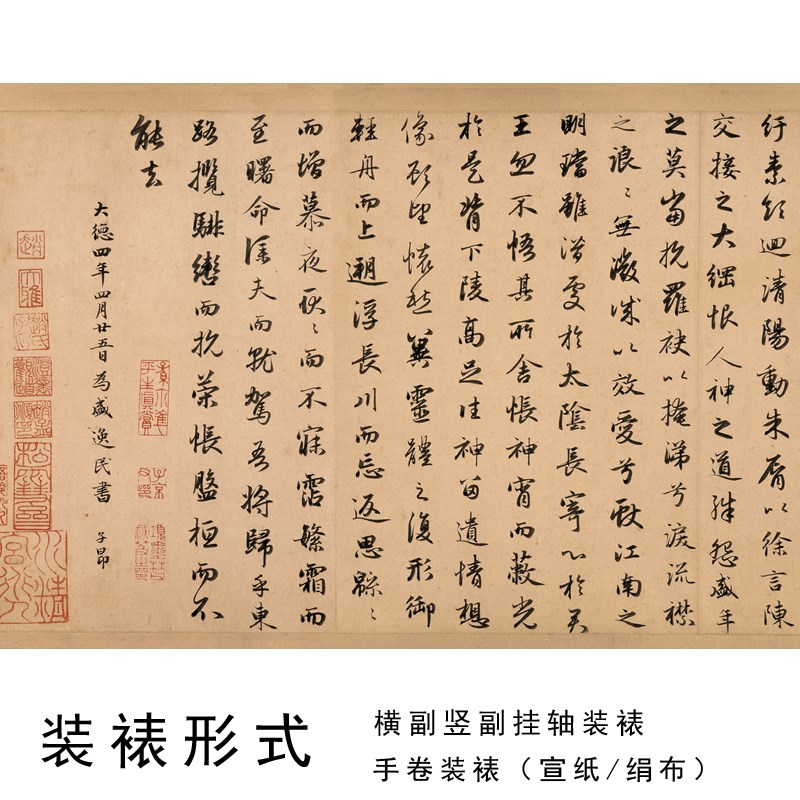 纡素領迴清陽動朱脣以徐言陳
交接之大綱恨人神之道殊怨盛年
之莫當抗羅袂以掩涕兮淚流襟
之浪〻無微誠以效愛兮獻江南之
明璫雖潛處於太陰長寄心於君
王忽不悟其所舍悵神宵而蔽光
於是背下陵高足往神留遺情想
像顧望懷愁冀靈體之復形御
輕舟而上遡浮長川而忘返思緜〻
而增慕夜耿〻而不寐霑繁霜而
至曙命僕夫而就駕吾將歸乎東
路攬騑轡而抗策悵盤桓而不
能去
大德四年四月廿五日為盛逸民書 子昂
子京父印
項墨林父秘笈之印
趙
大雅
松雪齋
装裱形式
横副竖副挂轴装裱
手卷装裱（宣纸/绢布）